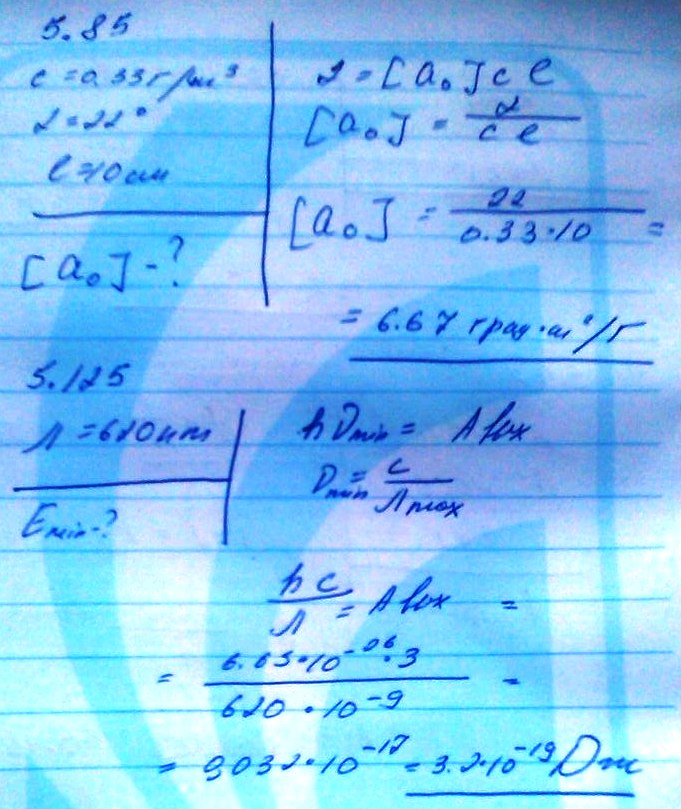 5.85
c = 0.33 г/см³
α = 22°
l = 10 см
[a₀] - ?
α = [a₀] c l
[a₀] = α / c l
[a₀] = 22 / 0.33 · 10 =
= 6.67 град · см²/г
5.125
λ = 620 нм
E min - ?
h ν min = A вых
ν min = c / λ max
h c / λ = A вых =
= 6.63 · 10⁻⁰⁶ · 3 / 620 · 10⁻⁹ =
= 0,032 · 10⁻¹⁷ = 3.2 · 10⁻¹⁹ Дж